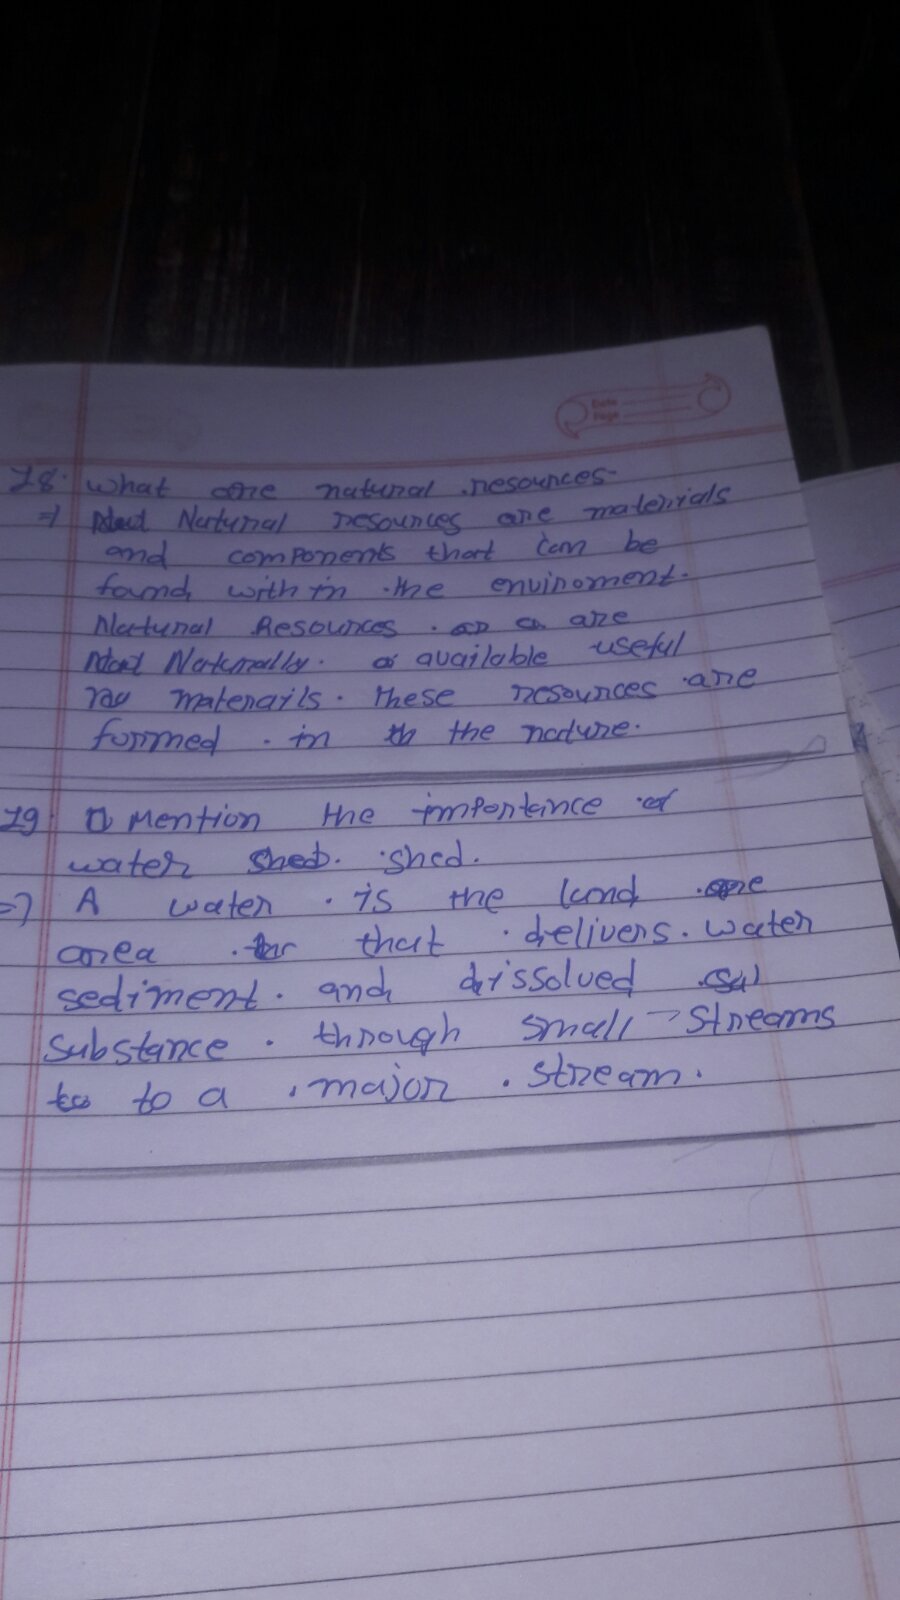 Date
Page
18. what are natural resources
=> Natural resources are materials
and components that can be
found with in the enviroment.
Natural Resources are
Naturally available useful
materails. These resources are
formed in the nature.
19 Mention the importance of
water shed. shed.
=> A water is the land
area that delivers water
sediment and dissolved
substance through small streams
to a major stream.